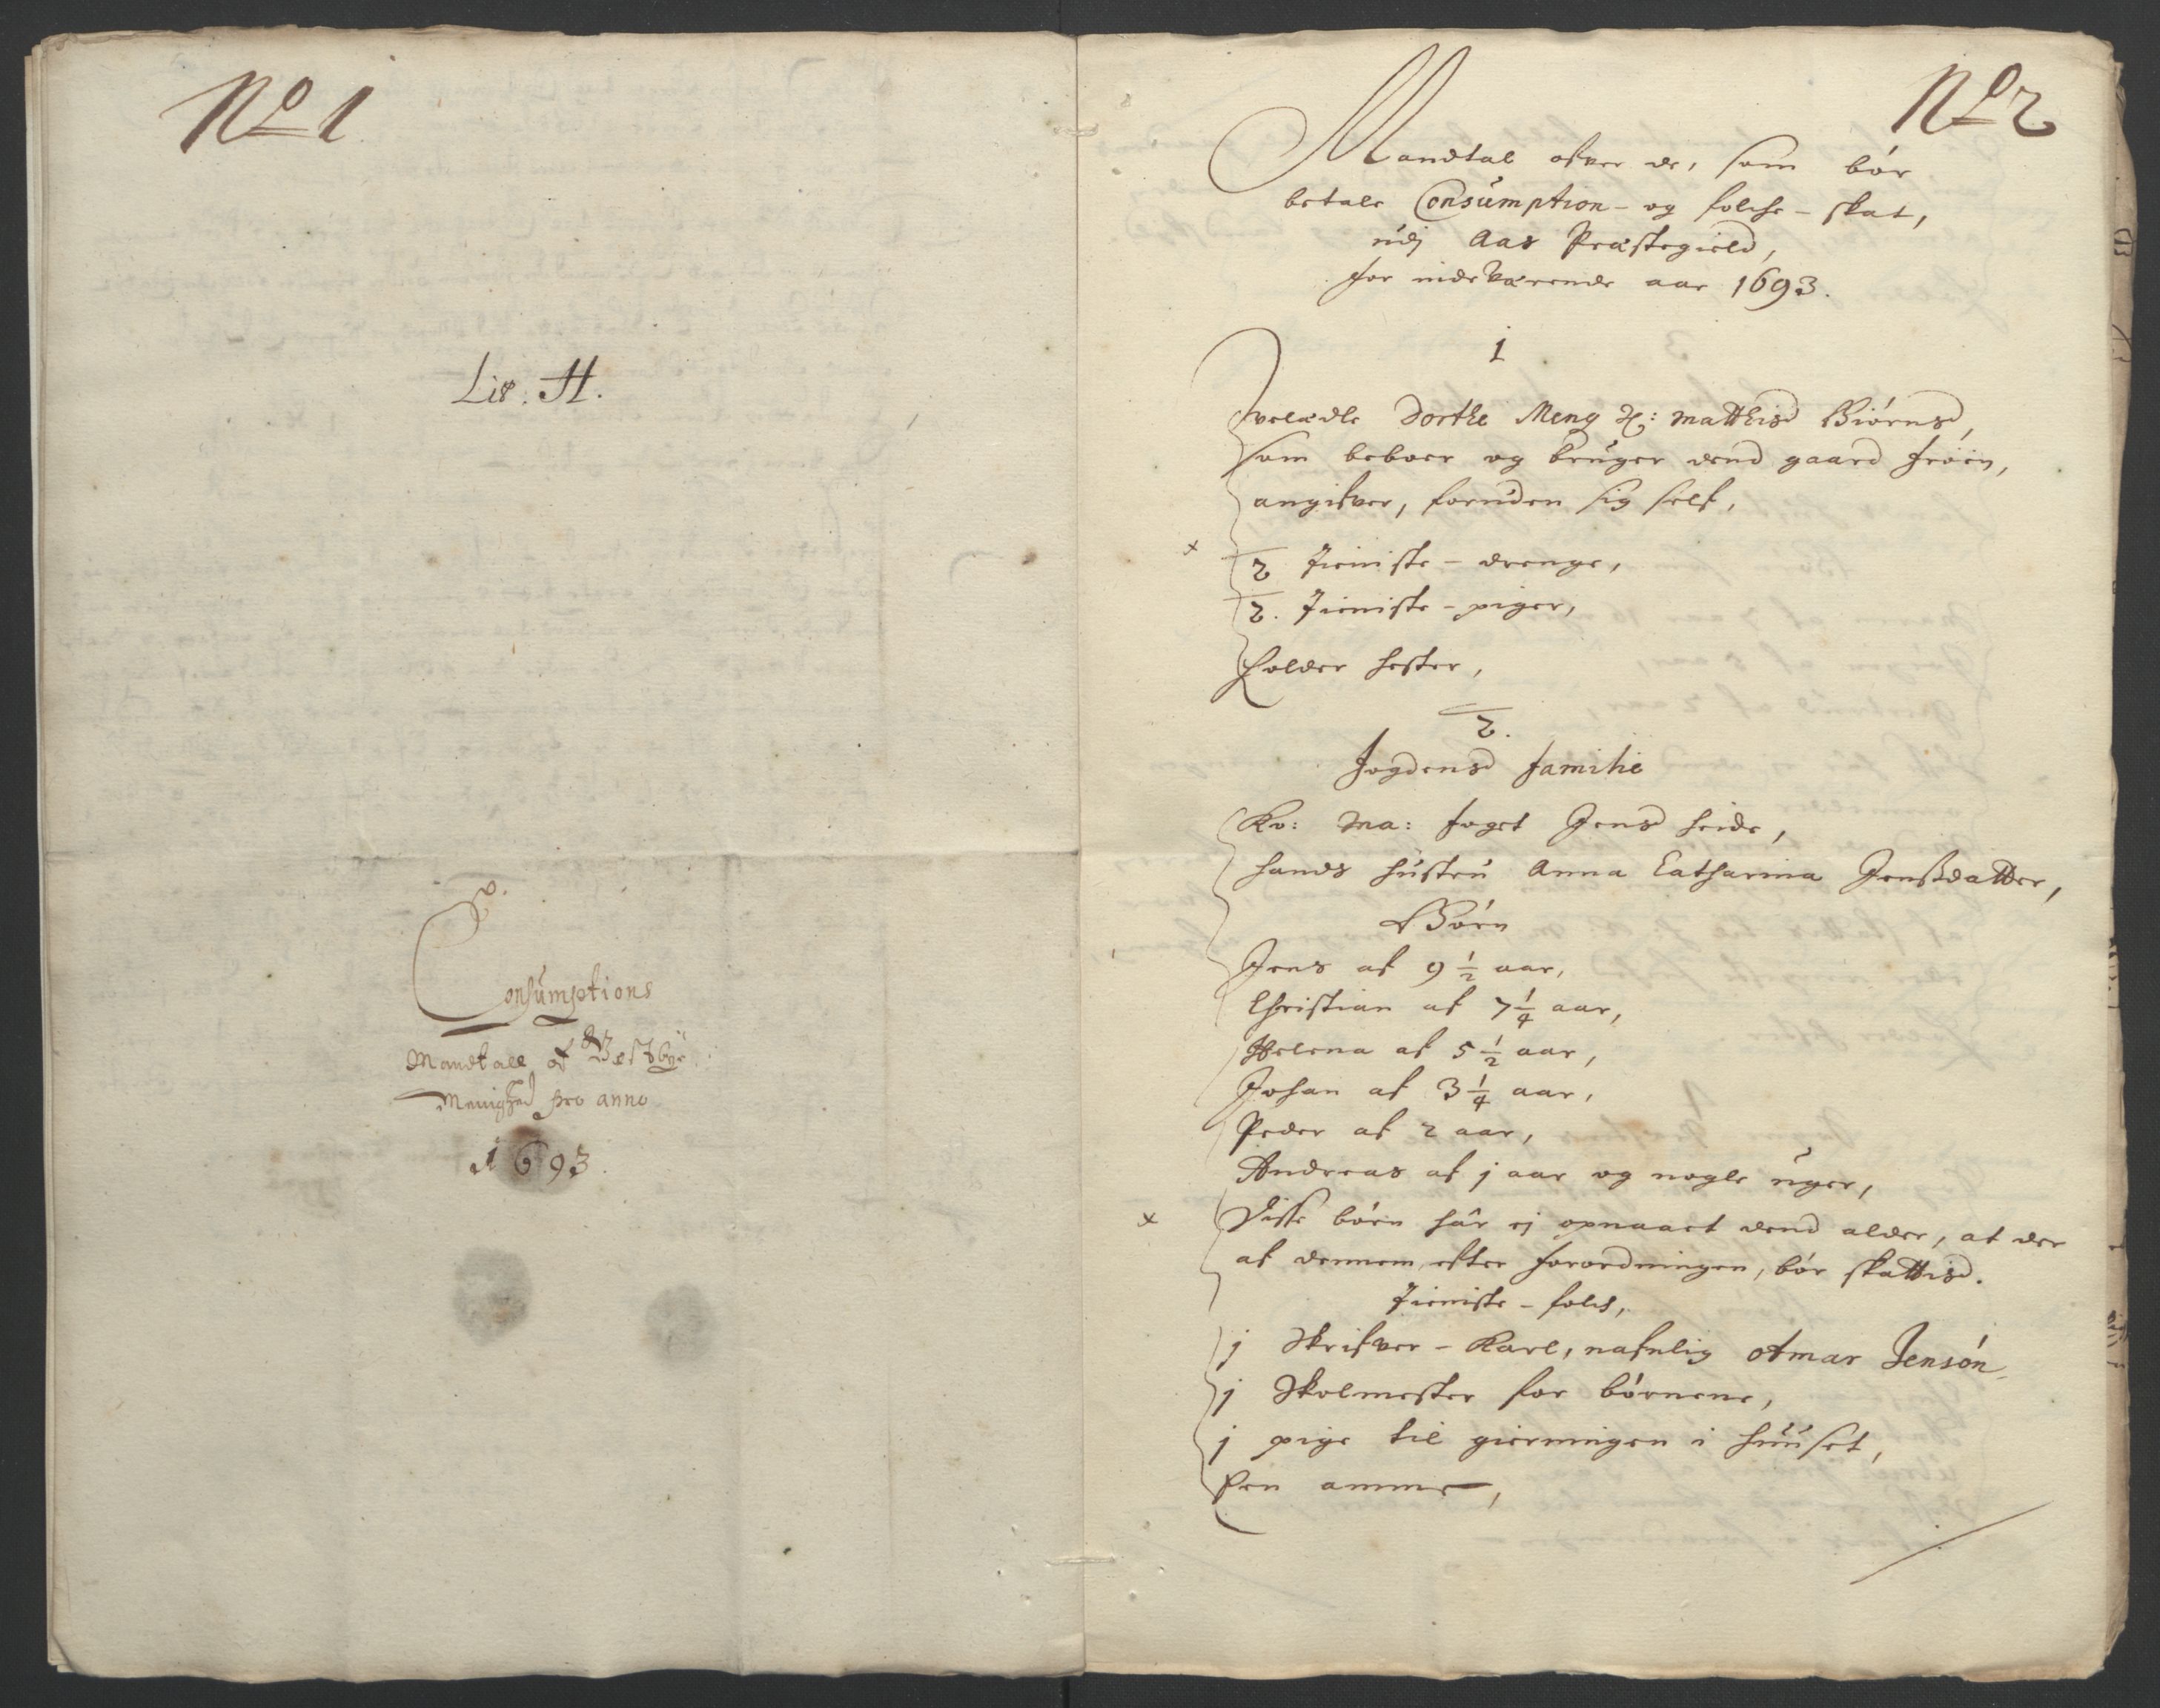 No 1
Lit. H.
Consumptions
Mandtall af Westbye
Menighed pro anno
1693.
No 2
Mandtal ofver de, som bör
betale Consumption- og folche-skat,
udj Aas Præstegield,
for indeværende aar 1693.
1
velædle Dorthe Meng Sl: Matthisd Biörnsd,
som beboer og bruger dend gaard Fröen,
angifver, foruden sig self,
2 Tieniste-drenge,
2. Tieniste-piger,
holder hester,
2.
Fogdensd familie
Ko: Ma: foget Jensd heide,
hands hustru Anna Catharina Jenssdatter,
Börn
Jens af 9 1/2 aar,
Christian af 7 1/4 aar,
Helena af 5 1/2 aar,
Johan af 3 1/4 aar,
Peder af 2 aar,
Andreas af j aar og nogle uger,
Disse börn har ej opnaaet dend alder, at der
af dennem, efter forordningen, bör skattisd.
Tieniste-folch,
j Skrifver-Karl, nafnlig Otmar Jensön
j Skolmester for börnene,
j pige til gierningen i huuset,
en amme,